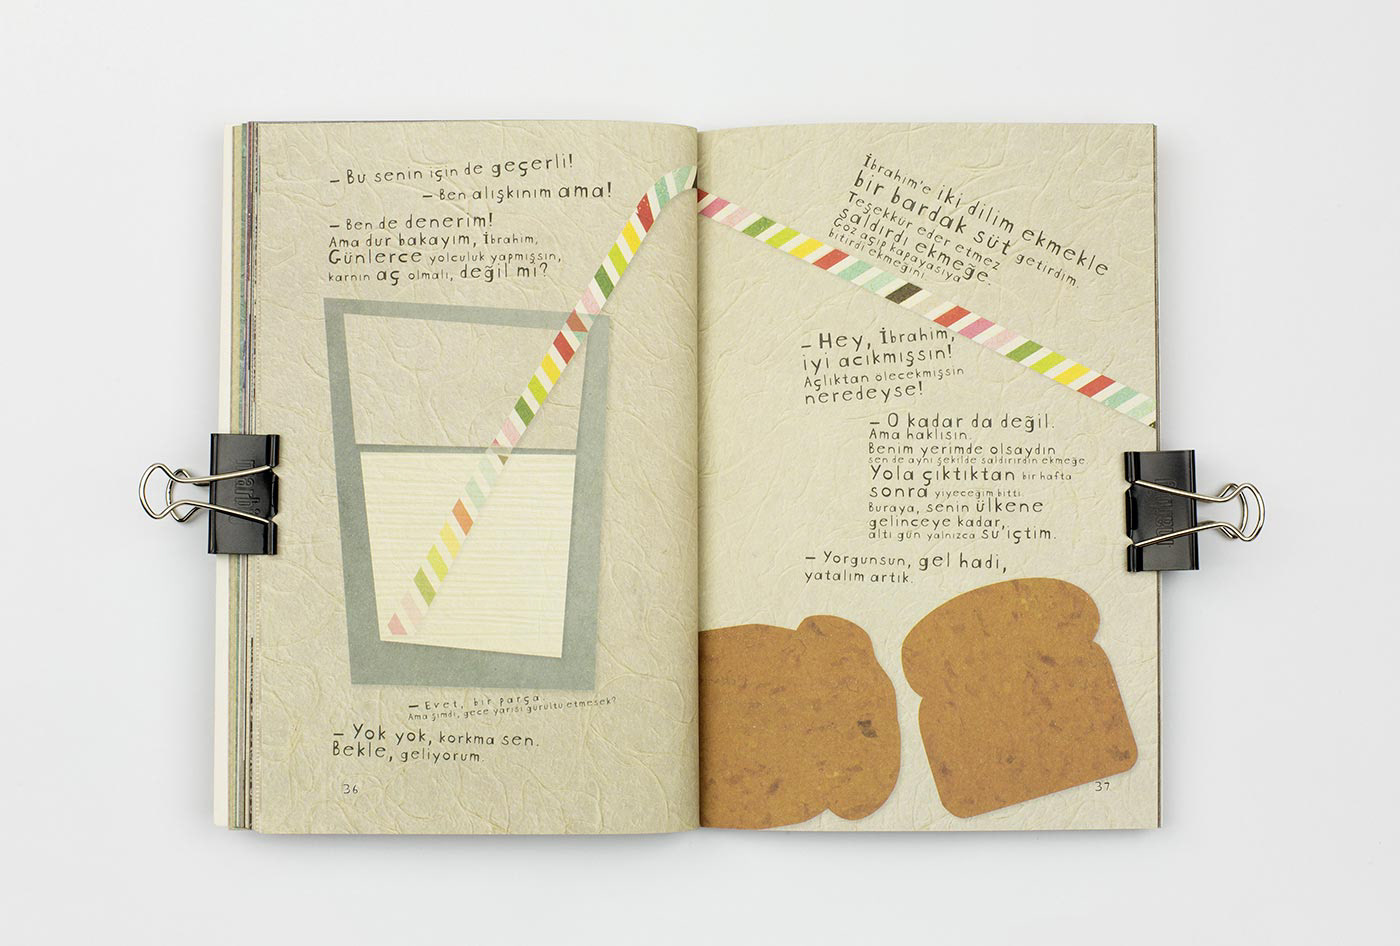 – Bu senin için de geçerli!
– Ben alışkınım ama!
– Ben de denerim!
Ama dur bakayım, İbrahim,
Günlerce yolculuk yapmışsın,
karnın aç olmalı, değil mi?
– Evet, bir parça.
Ama şimdi, gece yarısı gürültü etmesek?
– Yok yok, korkma sen.
Bekle, geliyorum.
36
İbrahim'e iki dilim ekmekle
bir bardak süt getirdim.
Teşekkür eder etmez
saldırdı ekmeğe.
Göz açıp kapayasıya
bitirdi ekmeğini.
– Hey, İbrahim,
iyi acıkmışsın!
Açlıktan ölecekmişsin
neredeyse!
– O kadar da değil.
Ama haklısın.
Benim yerimde olsaydın
sen de aynı şekilde saldırırdın ekmeğe.
Yola çıktıktan bir hafta
sonra yiyeceğim bitti.
Buraya, senin ülkene
gelinceye kadar,
altı gün yalnızca su içtim.
– Yorgunsun, gel hadi,
yatalım artık.
37